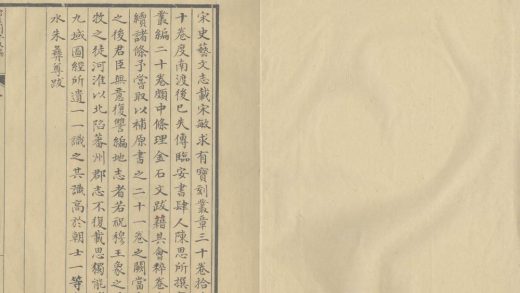 宋史藝文志載宋敏求有寶刻叢章三十卷拾
十卷度南渡後已失傳臨安書肆人陳思所撰
叢編二十卷頗中條理金石文跋籍其會粹卷
續諸條予嘗取以補原書之二十一卷之闕當
之後君臣無意復讐編地志者若祝穆王象之
牧之徒河淮以北陷蕃州郡志不復載思獨能
九域圖經所遺一一識之其識高於朝士一等
水朱彝尊跋